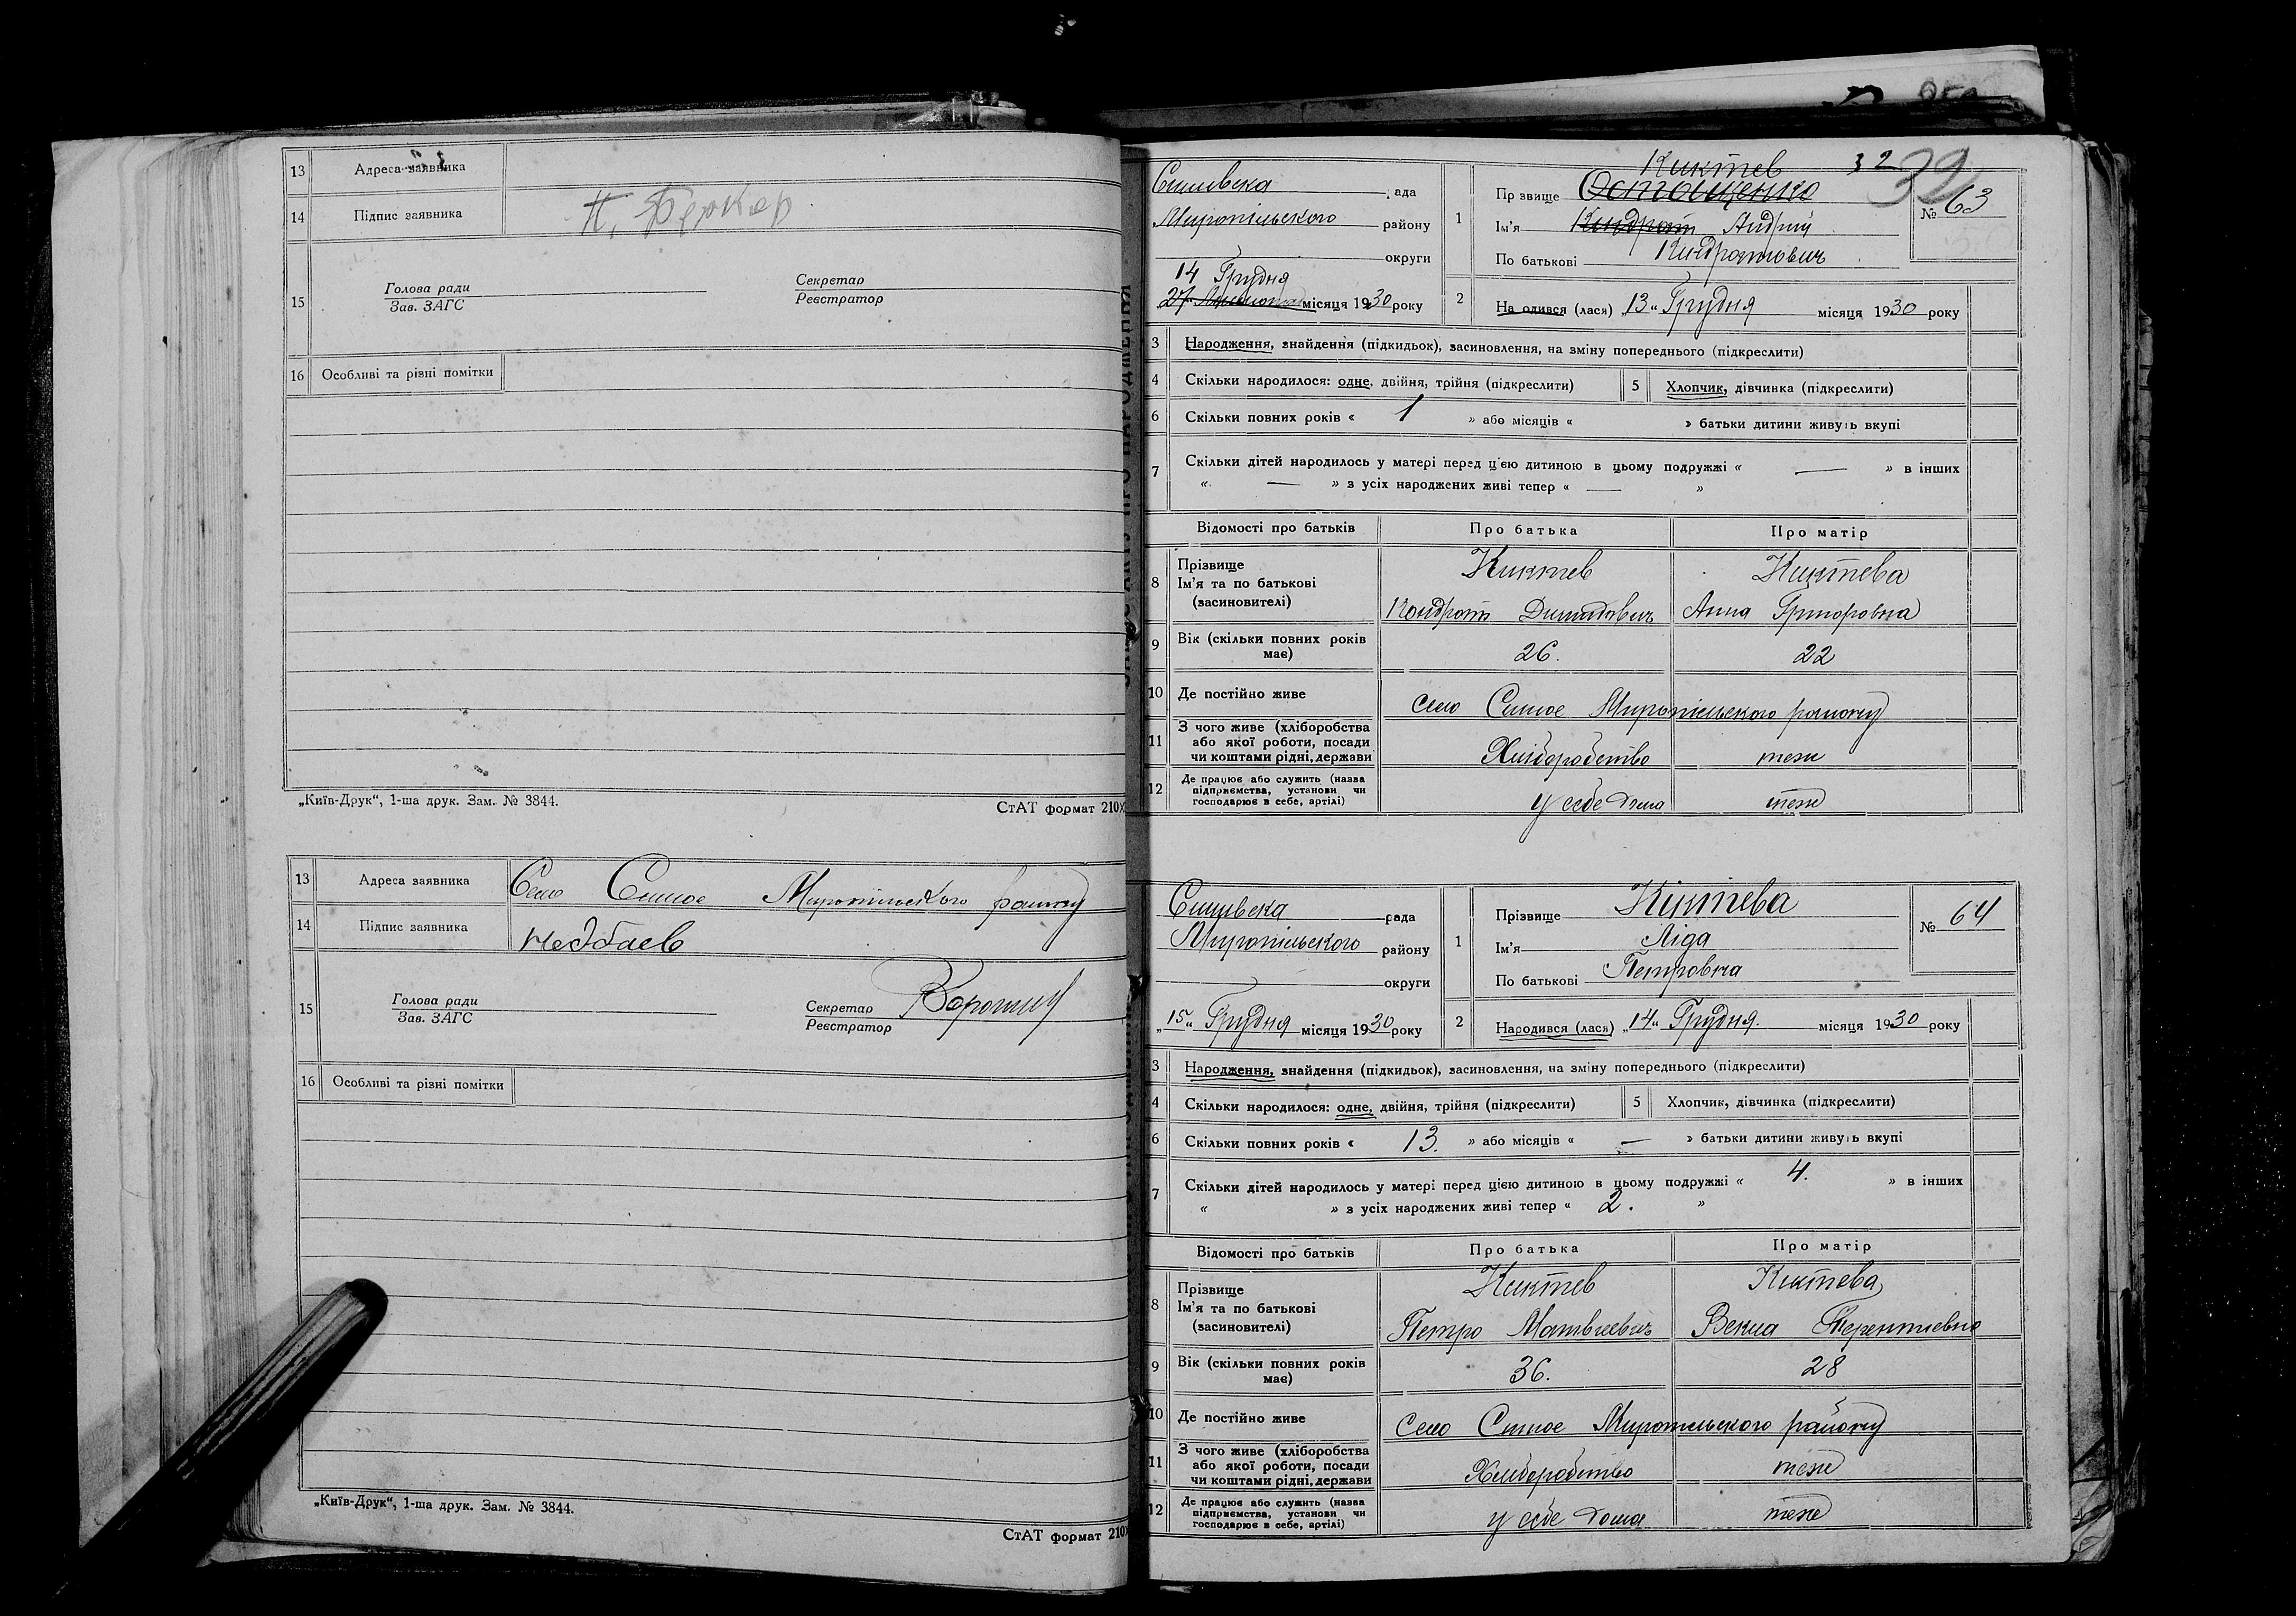 13 Адреса заявника
14 Підпис заявника
15 Голова ради
Зав. ЗАГС
Секретар
Реєстратор
16 Особливі та різні помітки
„Київ-Друк“, 1-ша друк. Зам. № 3844.
СтАТ формат 210
13 Адреса заявника Село Синое Миропільского району
14 Підпис заявника
15 Голова ради
Зав. ЗАГС
Секретар
Реєстратор
16 Особливі та різні помітки
„Київ-Друк“, 1-ша друк. Зам. № 3844.
СтАТ формат 210
32 32
рада
Миропільського району
округи
14 Грудня
27 місяця 1930 року
№ 63
Киктев
1 Прізвище
Ім'я Кондрат Андрий
По батькові Кондратович
2 Народився (лася) „13“ Грудня місяця 1930 року
3 Народження, знайдення (підкидьок), засиновлення, на зміну попереднього (підкреслити)
4 Скільки народилося: одне, двійня, трійня (підкреслити) 5 Хлопчик, дівчинка (підкреслити)
6 Скільки повних років « 1 » або місяців « » батьки дитини живуть вкупі
7 Скільки дітей народилось у матері перед цією дитиною в цьому подружжі « — » в інших
« — » з усіх народжених живі тепер « — »
Відомості про батьків Про батька Про матір
8 Прізвище Киктев Киктева
Ім'я та по батькові
(засиновителі) Кондрат Анна Григоровна
9 Вік (скільки повних років має) 26. 22
10 Де постійно живе село Синое Миропільського району
11 З чого живе (хліборобства
або якої роботи, посади
чи коштами рідні, держави Хліборобство теж
12 Де працює або служить (назва
підприємства, установи чи
господарює в себе, артілі) у себе дома теж
рада
Миропільського району
округи
„15“ Грудня місяця 1930 року
№ 64
1 Прізвище Кіктева
Ім'я Ліда
По батькові Петровна
2 Народився (лася) „14“ Грудня. місяця 1930 року
3 Народження, знайдення (підкидьок), засиновлення, на зміну попереднього (підкреслити)
4 Скільки народилося: одне, двійня, трійня (підкреслити) 5 Хлопчик, дівчинка (підкреслити)
6 Скільки повних років « 13. » або місяців « — » батьки дитини живуть вкупі
7 Скільки дітей народилось у матері перед цією дитиною в цьому подружжі « 4. » в інших
« » з усіх народжених живі тепер « 2. »
Відомості про батьків Про батька Про матір
8 Прізвище Киктев Киктева
Ім'я та по батькові
(засиновителі) Петро Матвеевич Векла Терентиевна
9 Вік (скільки повних років має) 36. 28
10 Де постійно живе Село Синое Миропільського району
11 З чого живе (хліборобства
або якої роботи, посади
чи коштами рідні, держави Хліборобство теж
12 Де працює або служить (назва
підприємства, установи чи
господарює в себе, артілі) у себе дома теж